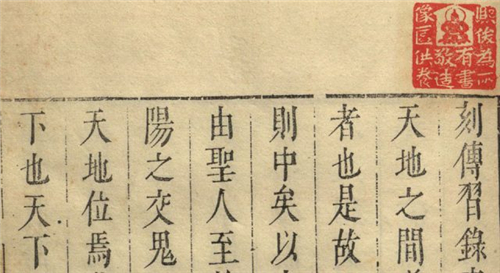 俊為所
有書
敬造
像區供養
刻傳習錄
天地之間
者也是故
則中矣以
由聖人至
陽之交鬼
天地位焉
下也天下